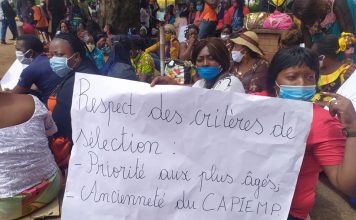 Respect des critères de
sélection :
- Priorité aux plus âgés,
- Ancienneté du CAPIEMP